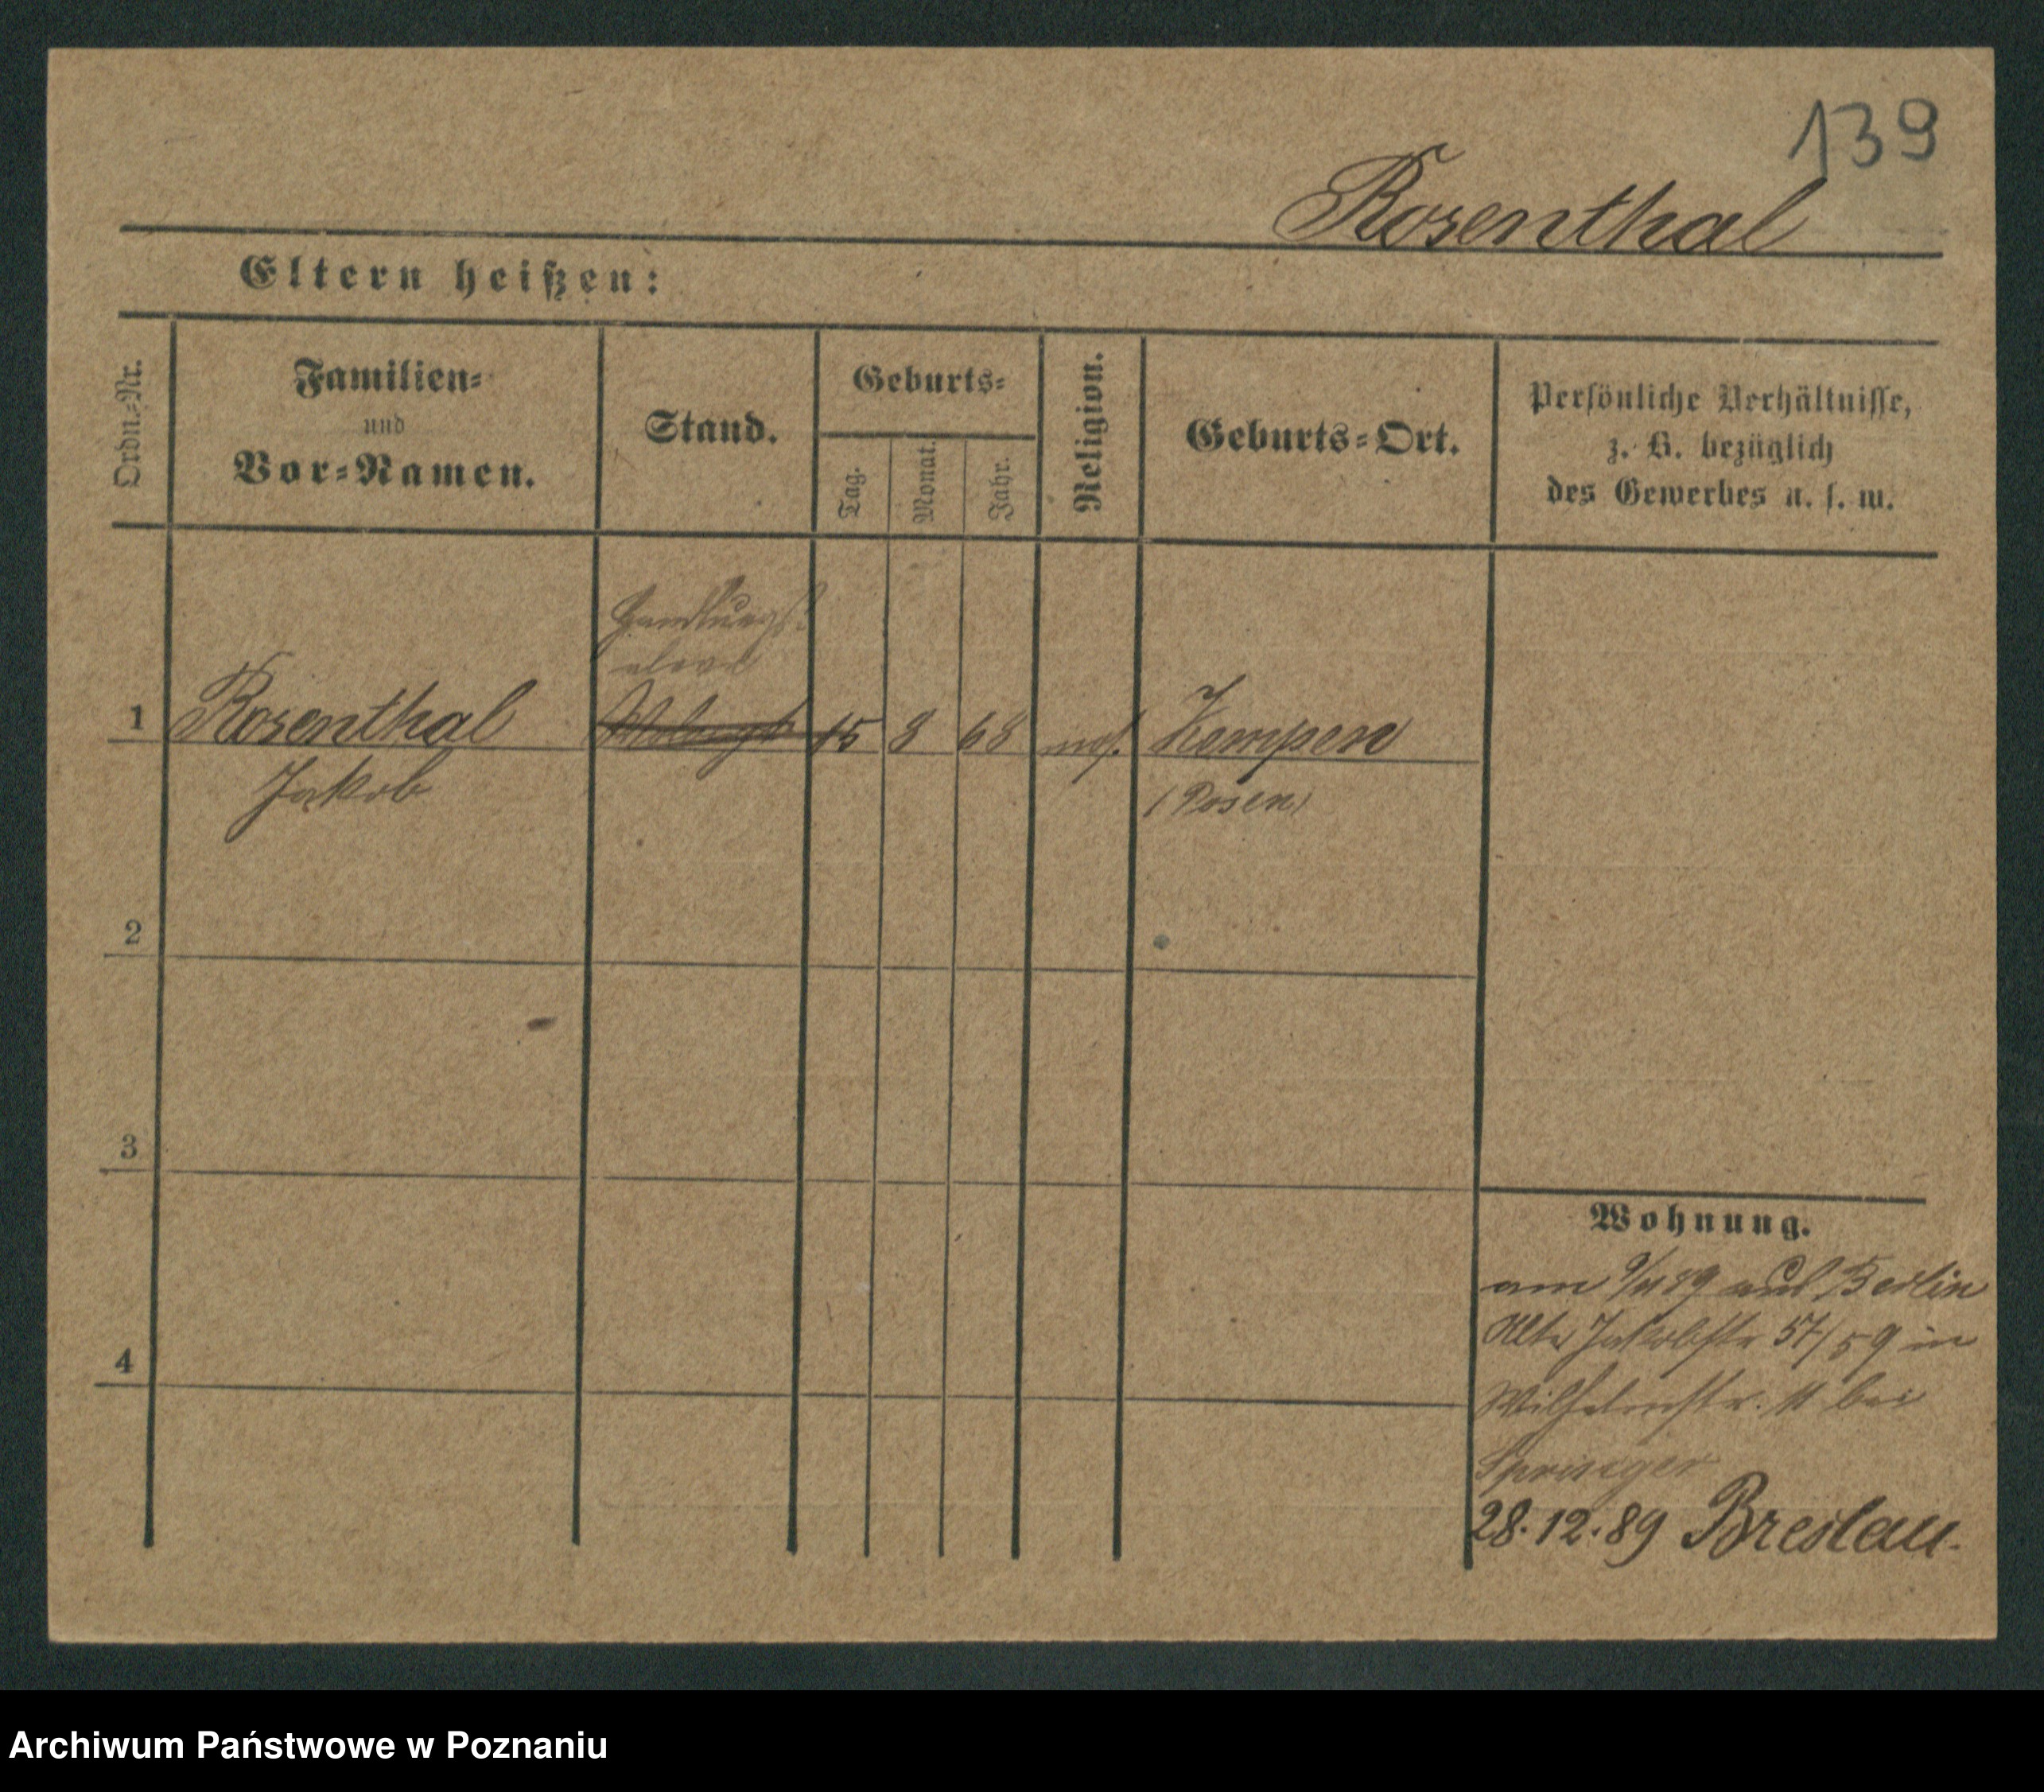 139
Rosenthal
Eltern heißen:
Ordn.-Nr.
Familien-
und
Vor-Namen.
Stand.
Geburts-
Tag.
Monat.
Jahr.
Religion.
Geburts-Ort.
Persönliche Verhältnisse,
z. B. bezüglich
des Gewerbes u. s. w.
Handlungs-
eleve
1 Rosenthal 15 8 68 mos. Kempen
Jakob (Posen)
2
3
4
Wohnung.
am 9/11 89 aus Berlin
Alte Jakobstr 57/59 in
Wilhelmstr. 11 bei
Springer
28.12.89 Breslau.
Archiwum Państwowe w Poznaniu